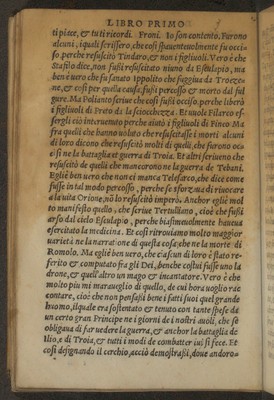 LIBRO PRIMO
ti piace, & tu ti ricordi. Froni. Io son contento. Furono
alcuni, i quali scrissero, che così spauenteuolmente fu occi
so, perche resuscitò Tindaro, & non i figliuoli. Vero è che
Stafilo dice, non fusse resuscitato niuno da Esculapio, ma
ben è uero che fu sanato Ippolito che fuggiua da Troeze-
ne, & così per quella causa, fusse percosso & morto dal ful
gure. Ma Polianto scriue che così fusse occiso, perche liberò
i figliuoli di Preto da la sciocchezza. Et uuole Filereo es-
sergli ciò interuenuto perche aiutò i figliuoli di Fineo Ma
fra quelli che hanno uoluto che resuscitasse i morti alcuni
di loro dicono che resuscitò molti di quelli, che furono oc
isi ne la battaglia & guerra di Troia. Et altri scriueno che
resuscitò de quelli che mancorono ne la guerra de Tebani.
Egliè ben uero che non ci manca Telesarco, che dice come
fusse in tal modo percosso, perche se sforzaua di riuocare
a la uita Orione, nō lo resuscitò imperò. Anchor egliè mol
to manifesto quello, che scriue Tertulliano, cioè che fusse
arso dal cielo Esculapio, perche biasimeuolmente haueua
esercitato la medicina. Et così ritrouiamo molto maggior
uarietà ne la narratione di questa cosa, che ne la morte di
Romolo. Ma egliè ben uero, che ciascun di loro è stato re-
ferito & computato fra gli Dei, benche costui fusse uno la
drone, & quell'altro un mago & incantatore. Vero è che
molto piu mi marauiglio di quello, de cui hora uoglio rac
contare, cioè che non pensasse bene i fatti suoi quel grande
huomo, il quale era sostentato & tenuto con tante spese da
un certo gran Principe ne i giorni de i nostri auoli, che se
obligaua di far uedere la guerra, & anchor la battaglia de
Ilio, e di Troia, & tutti i modi de combatter iui si fece. Et
così disegnando il cerchio, acciò demostrasse, doue andoro-